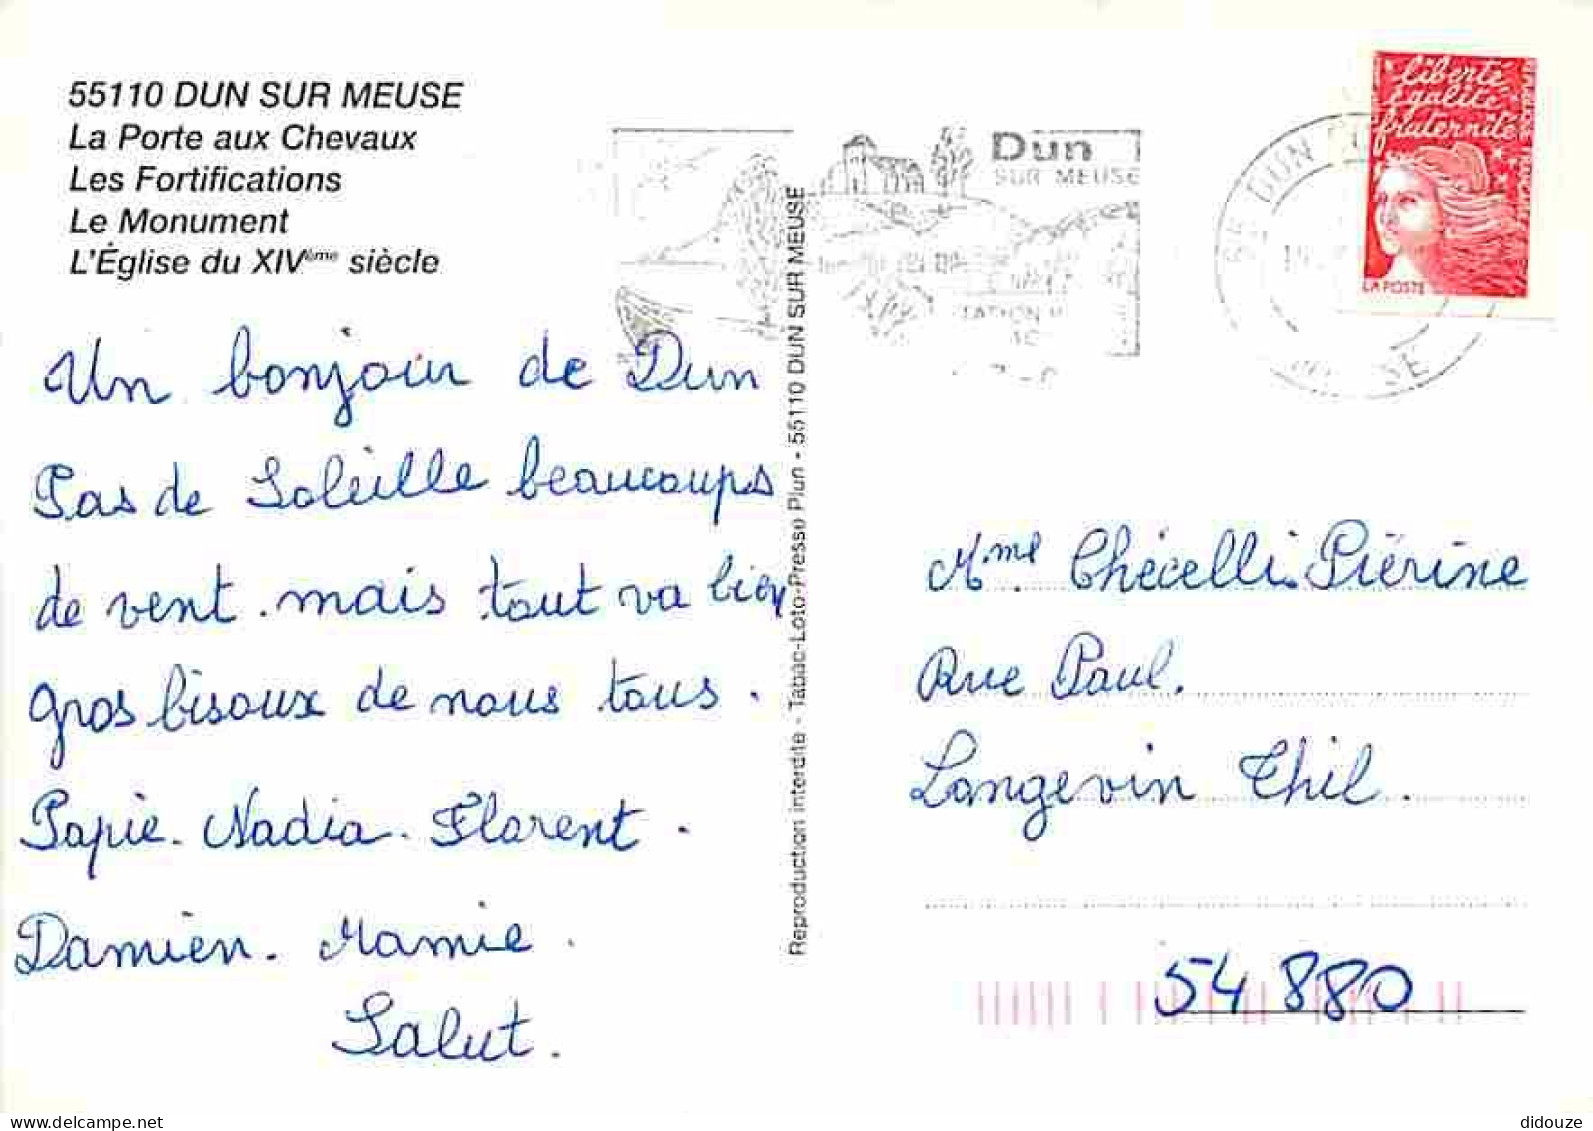 55110 DUN SUR MEUSE
La Porte aux Chevaux
Les Fortifications
Le Monument
L'Église du XIVème siècle
Un bonjour de Dun
Pas de Soleille beaucoups
de vent. mais tout va bien
gros bisoux de nous tous.
Papie. Nadia. Florent.
Damien. Mamie.
Salut.
Reproduction interdite - Tabac-Loto-Presse Plun - 55110 DUN SUR MEUSE
Dun
SUR MEUSE
55 DUN
MEUSE
liberté
égalité
fraternité
LA POSTE
Mme. Chécelli Piérine
Rue Paul.
Langevin Thil.
54 880
www.delcampe.net
didouze